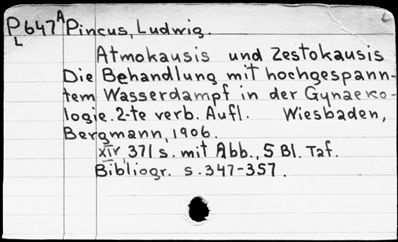 P647A Pincus, Ludwig.
L
Atmokausis und Zestokausis
Die Behandlung mit hochgespann-
tem Wasserdampf in der Gynaeko-
logie. 2-te verb. Aufl. Wiesbaden,
Bergmann, 1906.
XIV, 371 s. mit Abb., 5 Bl. Taf.
Bibliogr. s. 347-357.